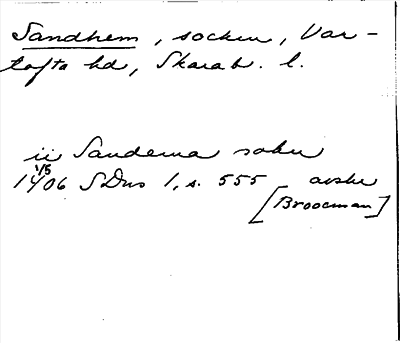 Sandhem, socken, Var-
tofta hd, Skarab. l.
ii Sandema sokn
1/5
1406 SDns 1, s. 555 avskr
[Broocman]